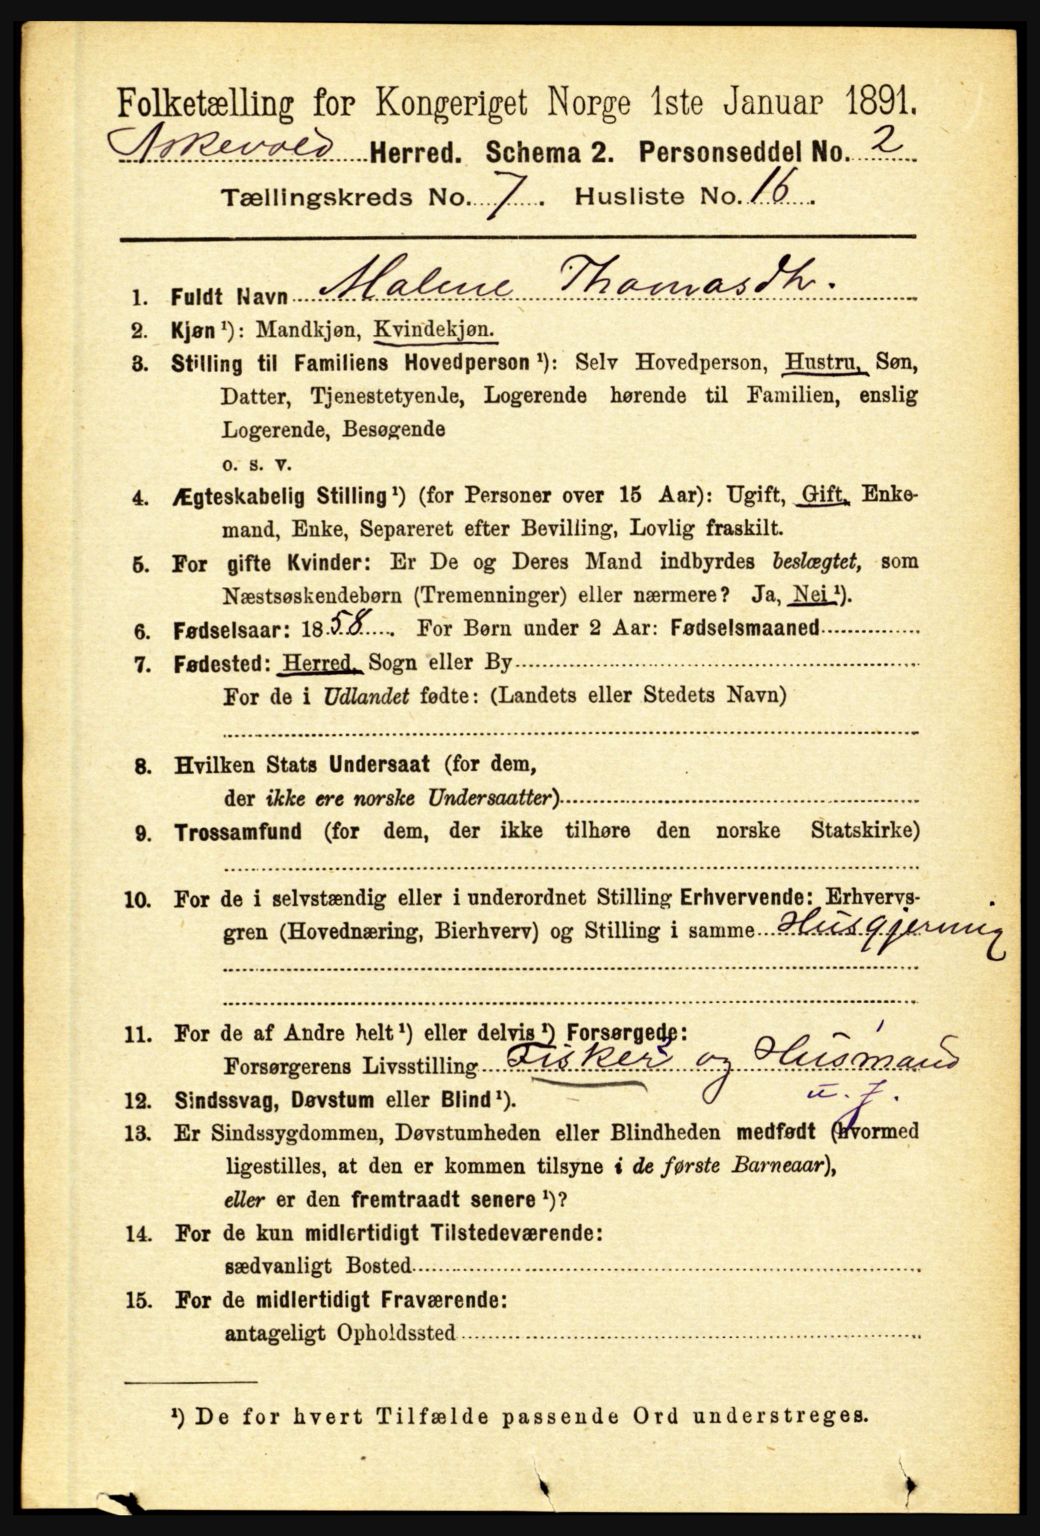 Folketælling for Kongeriget Norge 1ste Januar 1891.
Askevold Herred. Schema 2. Personseddel No. 2
Tællingskreds No. 7. Husliste No. 16.
1. Fuldt Navn Malene Thomasdh.
2. Kjøn ¹): Mandkjøn, Kvindekjøn.
3. Stilling til Familiens Hovedperson ¹): Selv Hovedperson, Hustru, Søn,
Datter, Tjenestetyende, Logerende hørende til Familien, enslig
Logerende, Besøgende
o. s. v.
4. Ægteskabelig Stilling ¹) (for Personer over 15 Aar): Ugift, Gift, Enke-
mand, Enke, Separeret efter Bevilling, Lovlig fraskilt.
5. For gifte Kvinder: Er De og Deres Mand indbyrdes beslægtet, som
Næstsøskendebørn (Tremenninger) eller nærmere? Ja, Nei ¹).
6. Fødselsaar: 1858. For Børn under 2 Aar: Fødselsmaaned
7. Fødested: Herred, Sogn eller By
For de i Udlandet fødte: (Landets eller Stedets Navn)
8. Hvilken Stats Undersaat (for dem,
der ikke ere norske Undersaatter)
9. Trossamfund (for dem, der ikke tilhøre den norske Statskirke)
10. For de i selvstændig eller i underordnet Stilling Erhvervende: Erhvervs-
gren (Hovednæring, Bierhverv) og Stilling i samme Husgjerning
11. For de af Andre helt ¹) eller delvis ¹) Forsørgede:
Forsørgerens Livsstilling Fisker og Husmand
u. j.
12. Sindssvag, Døvstum eller Blind ¹).
13. Er Sindssygdommen, Døvstumheden eller Blindheden medfødt (hvormed
ligestilles, at den er kommen tilsyne i de første Barneaar),
eller er den fremtraadt senere ¹)?
14. For de kun midlertidigt Tilstedeværende:
sædvanligt Bosted
15. For de midlertidigt Fraværende:
antageligt Opholdssted
¹) De for hvert Tilfælde passende Ord understreges.